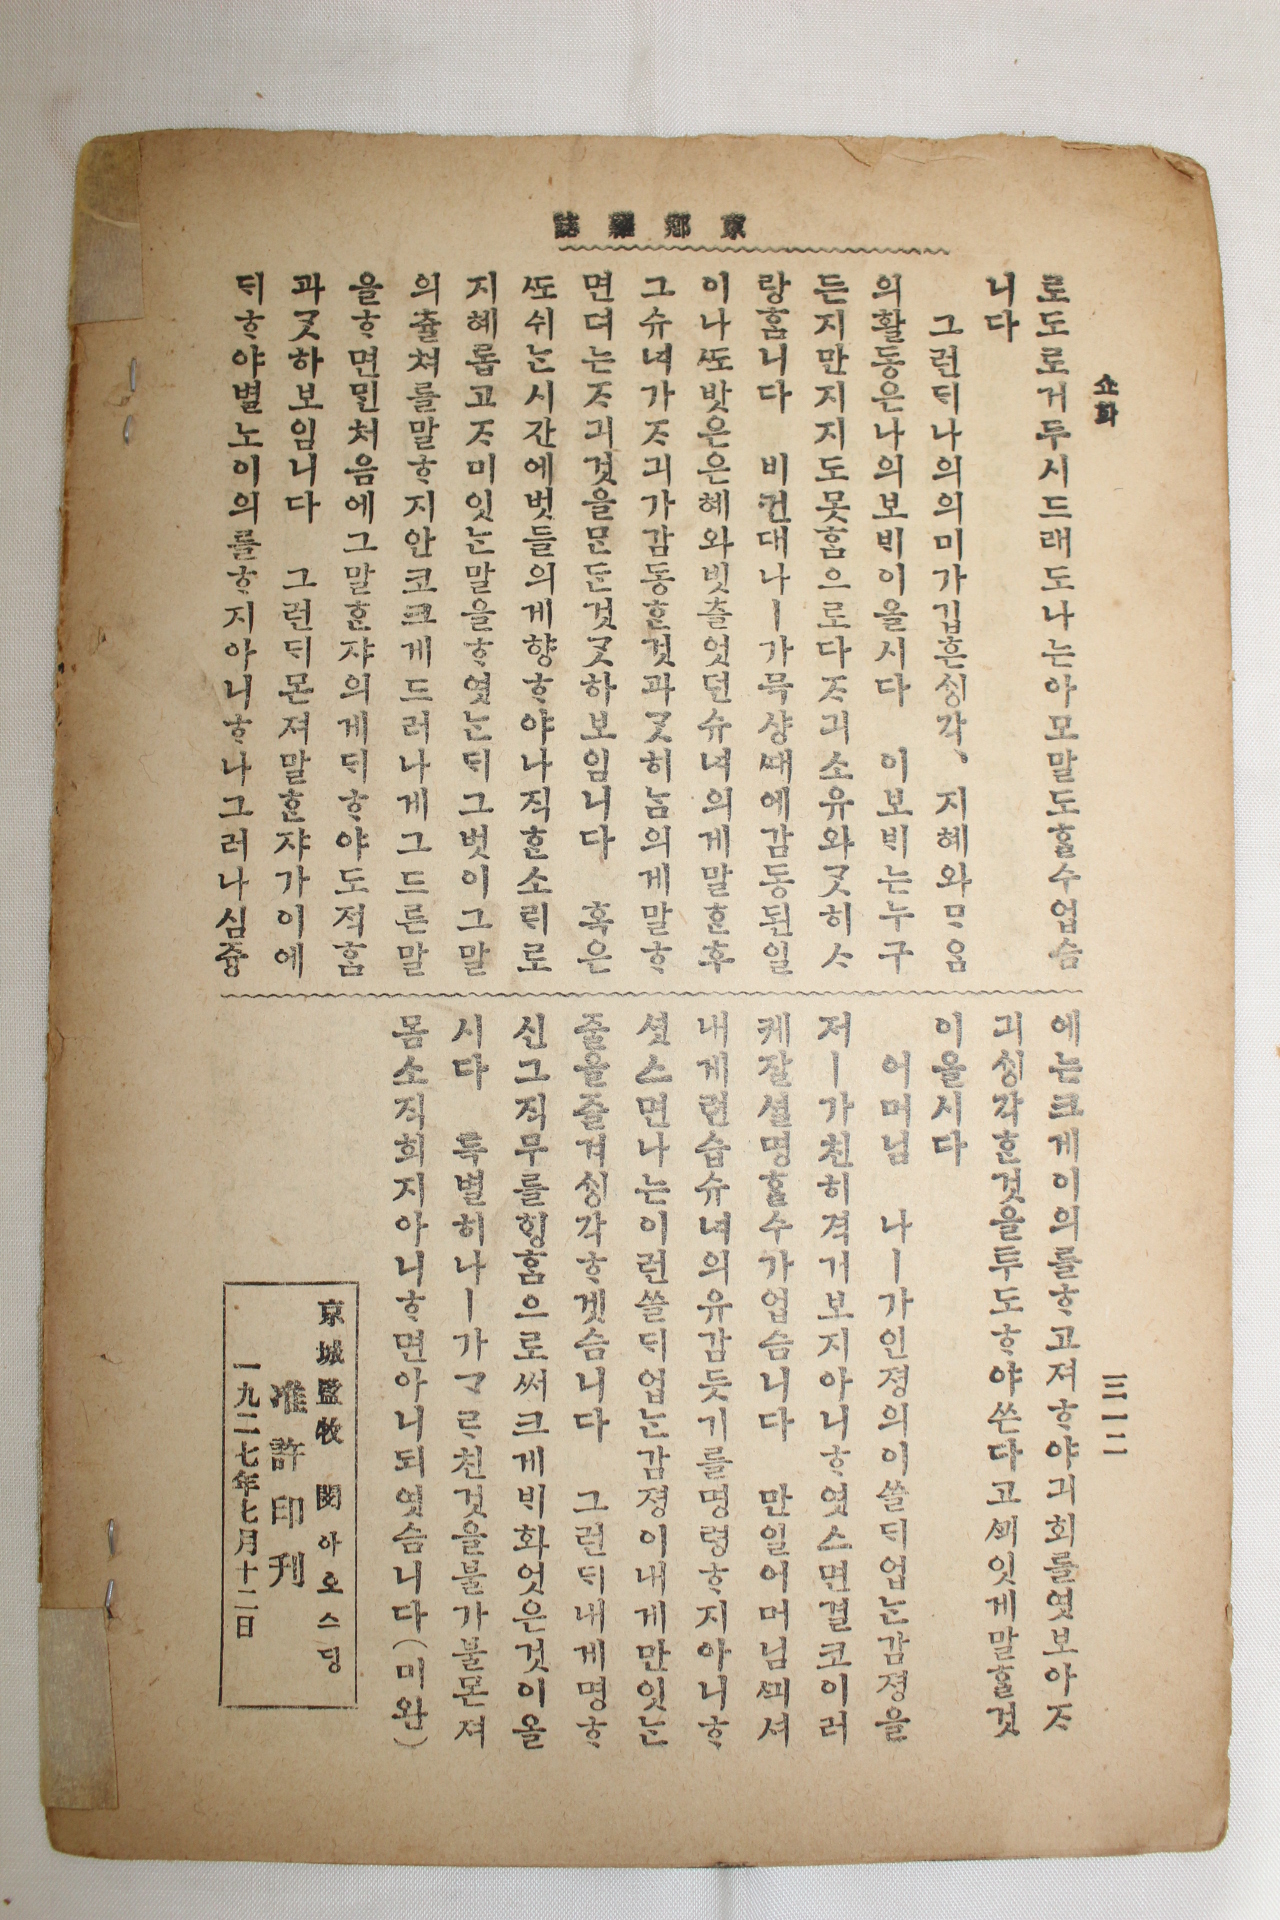 京鄕雜誌
쇼화
三一二
로도로거두시드래도나는아모말도ᄒᆞᆯ수업슴
니다
그런ᄃᆡ나의의미가깁흔ᄉᆡᆼ각、지혜와ᄆᆞᄋᆞᆷ
의활동은나의보ᄇᆡ이올시다 이보ᄇᆡ는누구
든지만지지도못ᄒᆞᆷ으로다ᄌᆞ긔소유와ᄀᆞᆺ히ᄉᆞ
랑ᄒᆞᆷ니다 비컨대나ㅣ가묵샹ᄯᅢ에감동된일
이나ᄯᅩ밧은은혜와빗츨엇던슈녀의게말ᄒᆞᆫ후
그슈녀가ᄌᆞ긔가감동ᄒᆞᆫ것과ᄀᆞᆺ히ᄂᆞᆷ의게말ᄒᆞ
면뎌는ᄌᆞ긔것을문든것ᄀᆞᆺ하보임니다 혹은
ᄯᅩ쉬ᄂᆞᆫ시간에벗들의게향ᄒᆞ야나직ᄒᆞᆫ소ᄅᆡ로
지혜롭고ᄌᆞ미잇ᄂᆞᆫ말을ᄒᆞ엿ᄂᆞᆫᄃᆡ그벗이그말
의츌쳐를말ᄒᆞ지안코크게드러나게그드른말
을ᄒᆞ면ᄆᆡᆫ처음에그말ᄒᆞᆫ쟈의게ᄃᆡᄒᆞ야도적ᄒᆞᆷ
과ᄀᆞᆺ하보임니다 그런ᄃᆡ몬져말ᄒᆞᆫ쟈가이에
ᄃᆡᄒᆞ야별노이의를ᄒᆞ지아니ᄒᆞ나그러나심즁
에는크게이의를ᄒᆞ고져ᄒᆞ야긔회를엿보아ᄌᆞ
긔ᄉᆡᆼ각ᄒᆞᆫ것을투도ᄒᆞ야쓴다고ᄲᅧ잇게말ᄒᆞᆯ것
이올시다
어머님 나ㅣ가인졍의이ᄡᅳᆯᄃᆡ업ᄂᆞᆫ감졍을
저ㅣ가친히격거보지아니ᄒᆞ엿스면결코이러
케잘셜명ᄒᆞᆯ수가업슴니다 만일어머님ᄭᅴ셔
내게련습슈녀의유감듯기를명령ᄒᆞ지아니ᄒᆞ
셧스면나는이런ᄡᅳᆯᄃᆡ업ᄂᆞᆫ감졍이내게만잇ᄂᆞᆫ
줄을즐겨ᄉᆡᆼ각ᄒᆞ겟슴니다 그런ᄃᆡ내게명ᄒᆞ
신그직무를ᄒᆡᆼᄒᆞᆷ으로써크게ᄇᆡ화엇은것이올
시다 특별히나ㅣ가ᄀᆞᄅᆞ친것을불가불몬져
몸소직희지아니ᄒᆞ면아니되엿슴니다(미완)
京城監牧 閔아오스딩
准許印刊
一九二七年七月十二日